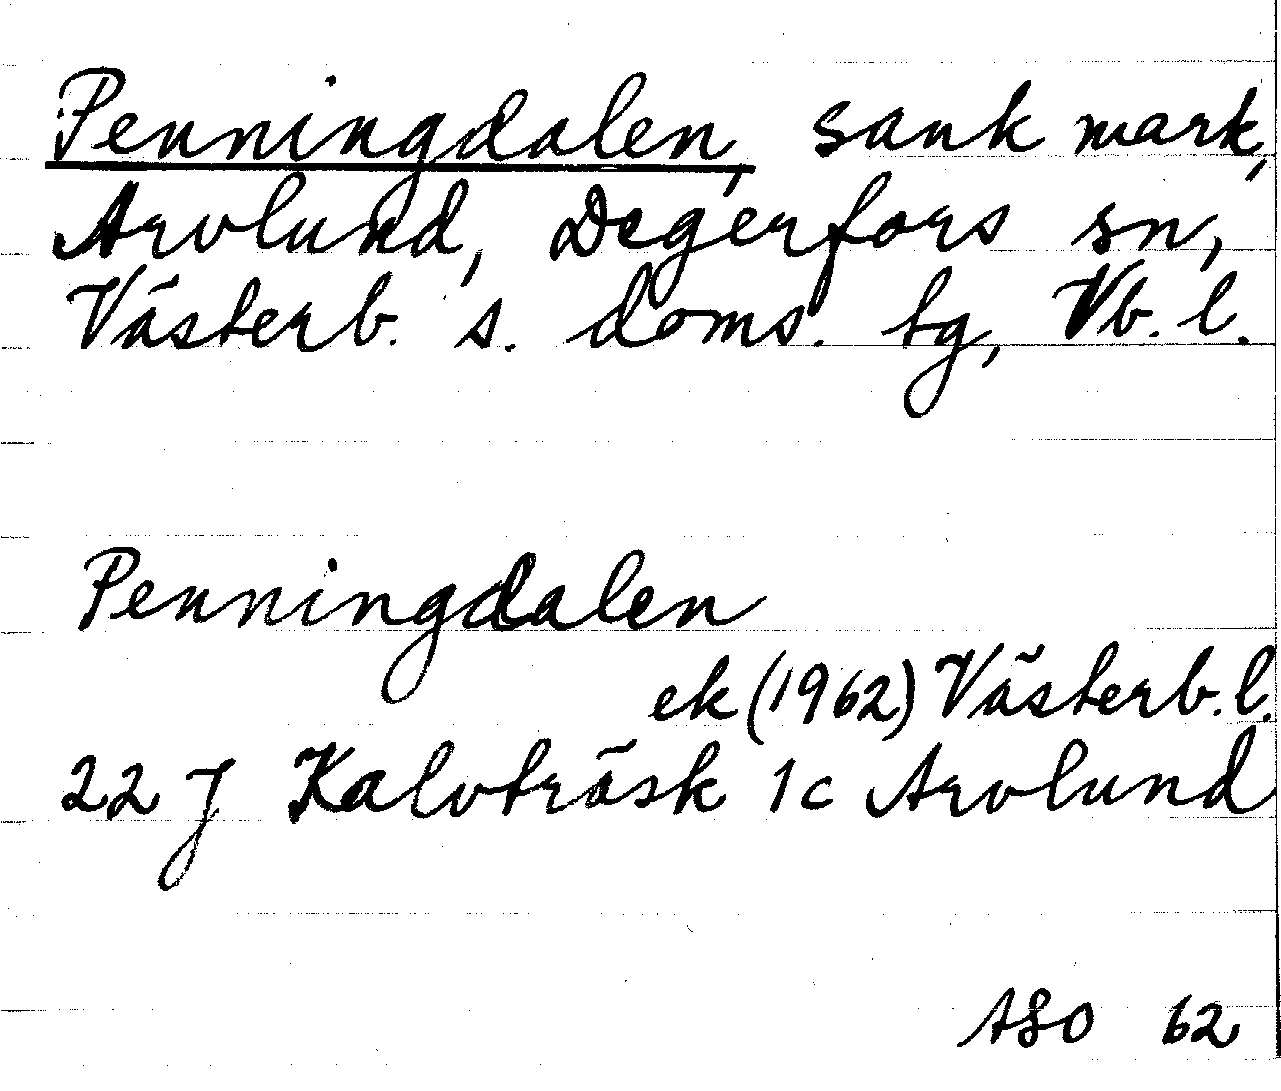 Penningdalen, sank mark,
Arvlund, Degerfors sn,
Västerb. s. doms. tg, Vb. l.
Penningdalen
ek (1962) Västerb. l.
22 J Kalvträsk 1c Arvlund
ASO 62